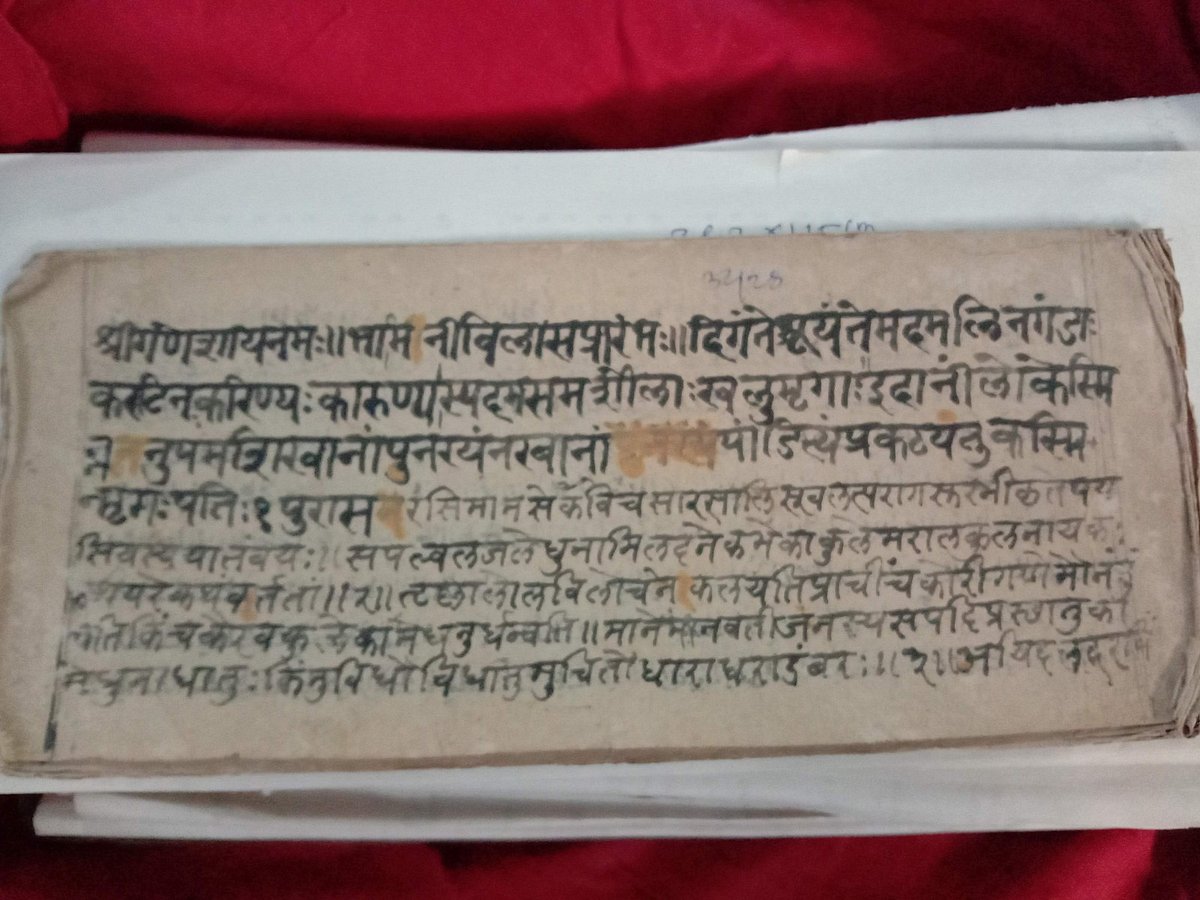 ३५२८
श्रीगणेशायनमः॥भामनीविलासप्रारंभः॥दिगंतेश्रूयंतेमदमलिनगंडाः
करटिनःकरिण्यःकारुण्यास्पदमसमशीलाःखलुमृगाःइदानींलोकेस्मि
न्ननुपमशिखानांपुनरयंनखानां पांडित्यंप्रकटयतुकस्मि
न्मृगःपतिः१पुरासरसिमानसेकविचसारसालिस्खलत्परागसुरभीकृतेपय
सियस्ययातंवयः॥सपल्वलजलेधुनामिलदनेकभेकाकुलेमरालकुलनायकः
कथयरेकथंवर्ततां॥२॥तृष्णालोलविलोचनेकलयतिप्राचींचकोरीगणेमौनं
किंचकैरवकुलेकामेधनुर्धन्वति॥मानेमानवतीजनस्यसपदिप्रस्थातुका
मेधुनाधातुःकिंनुविधौविधातुमुचितोधाराधराडंबरः॥३॥अयिदलदर